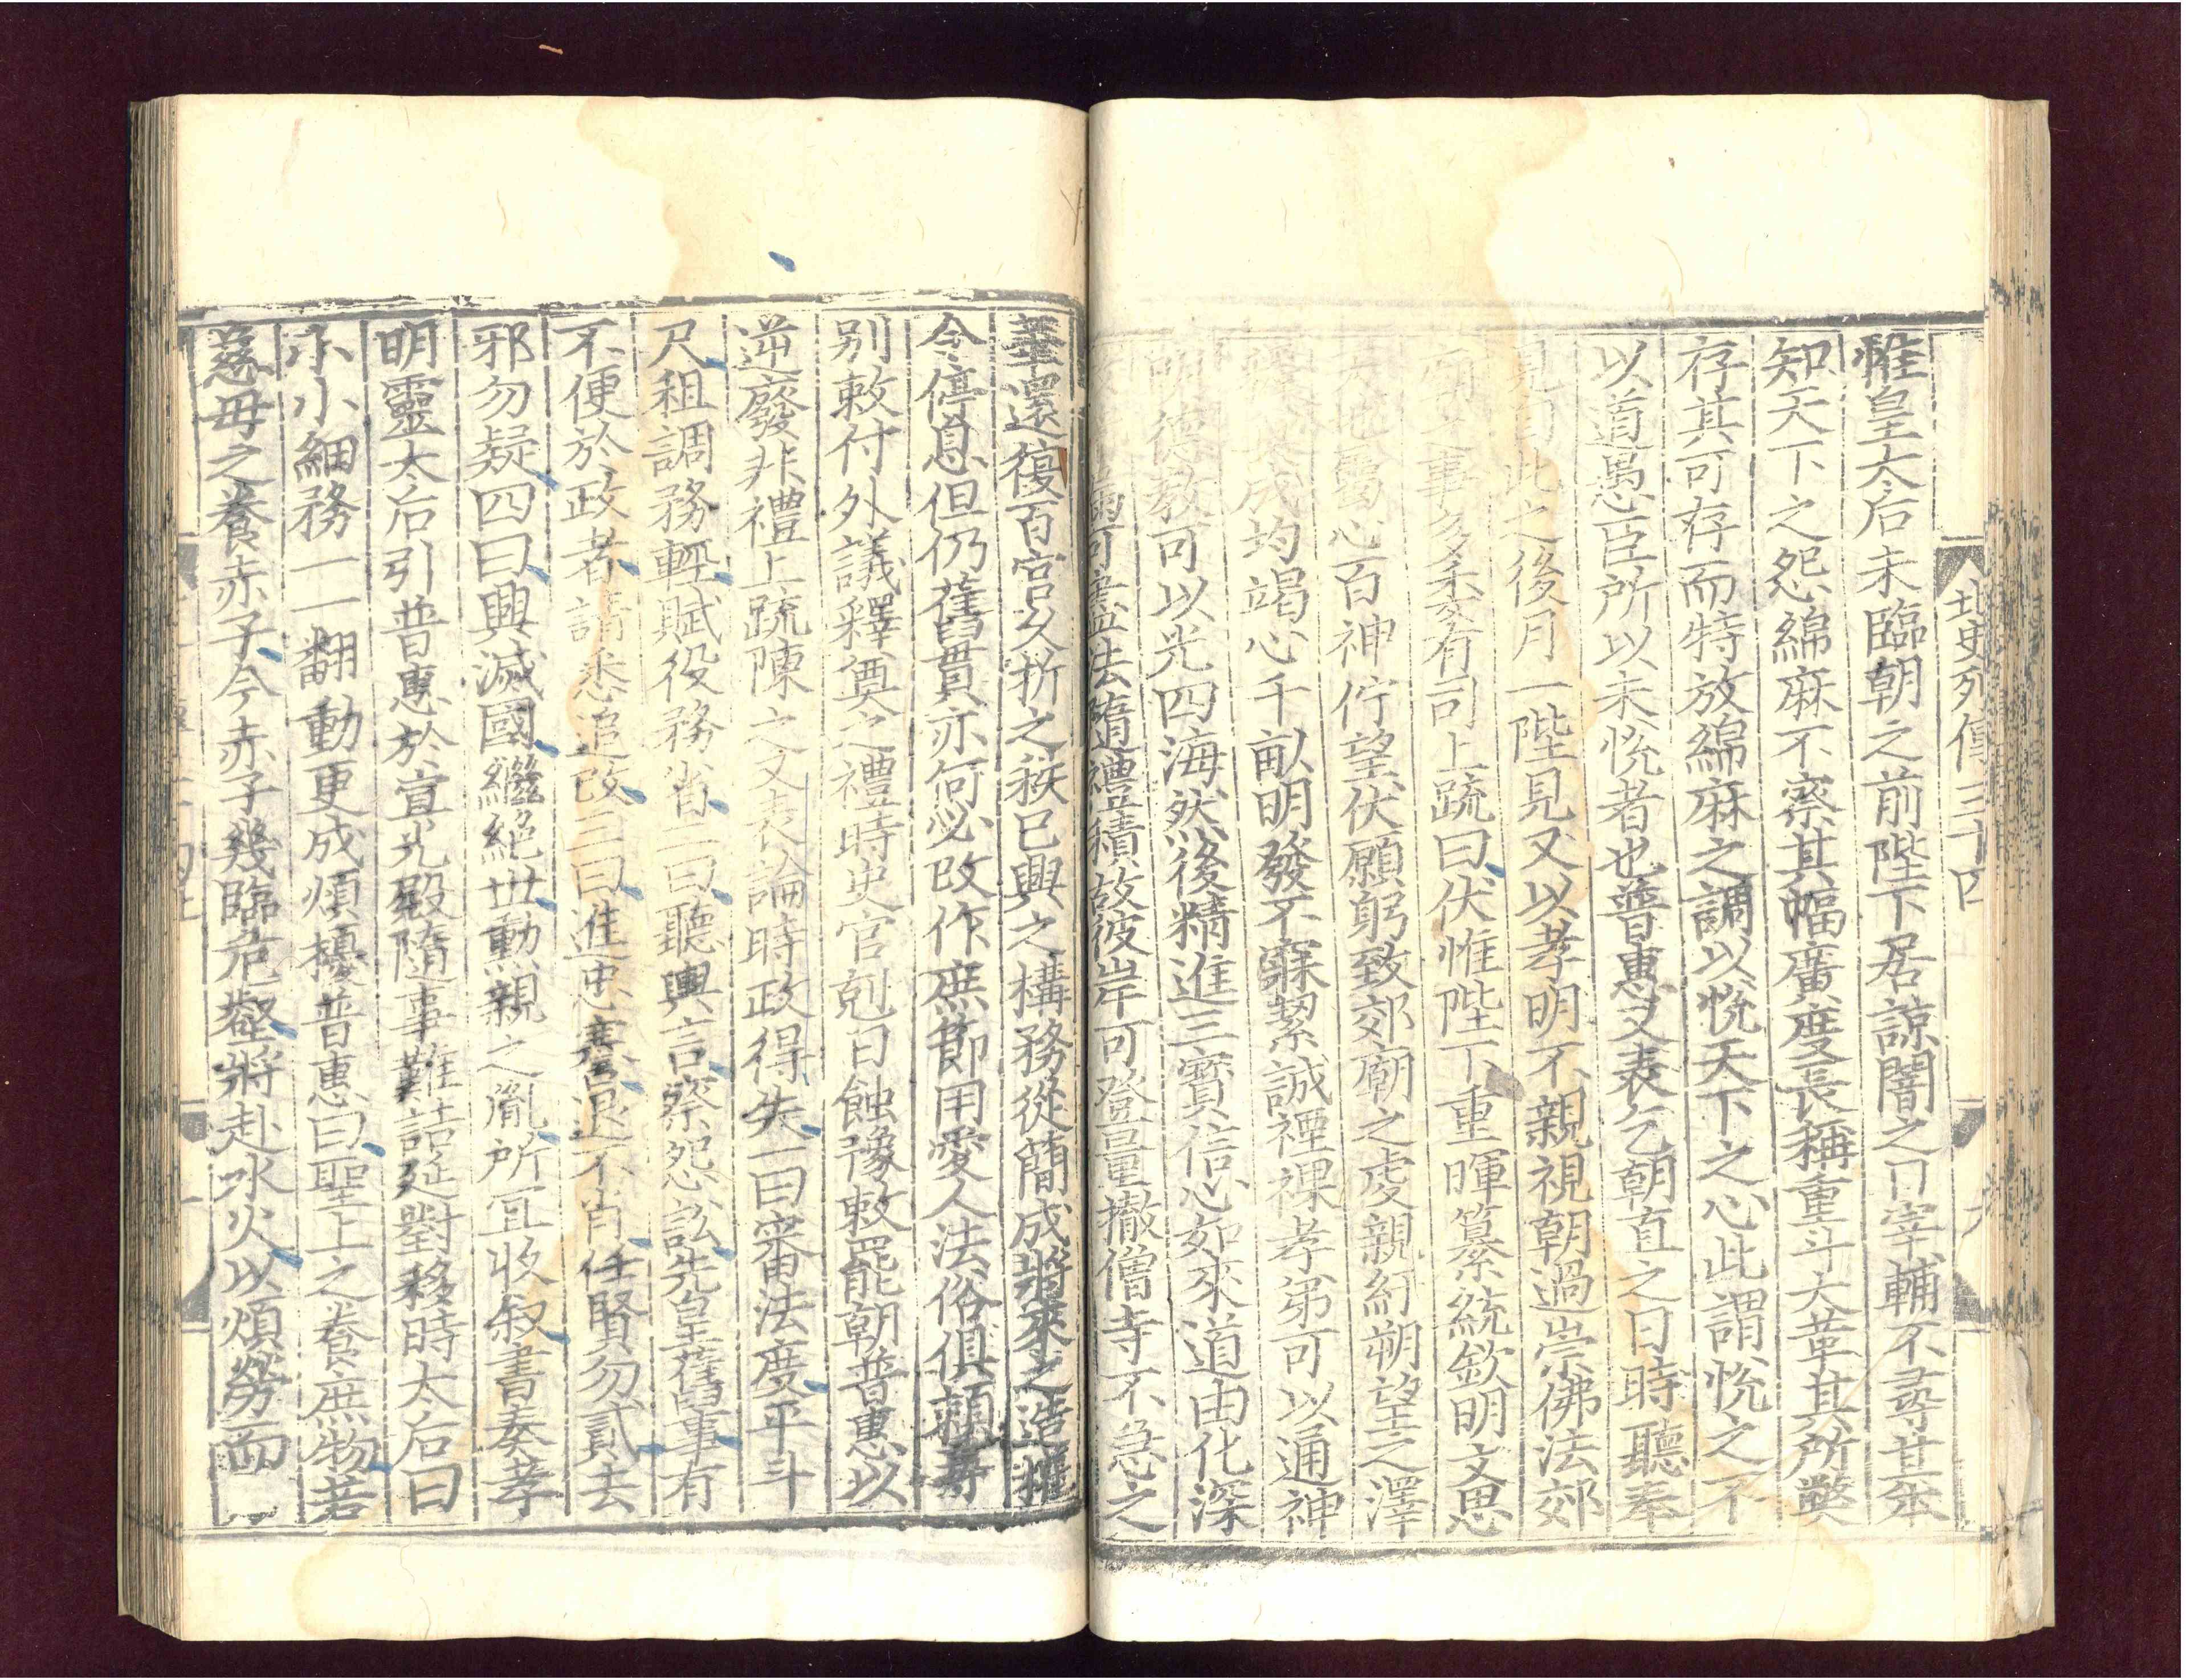 北史列傳三十四
惟皇太后未臨朝之前陛下居諒闇之日宰輔不尋其本
知天下之怨綿麻不察其幅廣度長稱重斗大革其所獘
存其可存而特放綿麻之調以悅天下之心此謂悅之不
以道愚臣所以未悅者也普惠又表乞朝直之日時聽奉
見自此之後月一陛見又以孝明不親視朝過崇佛法郊
廟之事多委有司上疏曰伏惟陛下重暉纂統欽明文思
天地屬心百神佇望伏願躬致郊廟之虔親紆朔望之澤
成均竭心千畝明發不寐潔誠禋祼孝弟可以通神
明德教可以光四海然後精進三寶信心如來道由化深
可盡法隨禮積故彼岸可登量撤僧寺不急之
華還復百官久折之秩已興之構務從簡成將來之造權
令停息但仍舊貫亦何必改作庶節用愛人法俗俱賴尋
別敕付外議釋奠之禮時史官剋日蝕豫敕罷朝普惠以
逆廢非禮上疏陳之又表論時政得失一曰審法度平斗
尺租調務輕賦役務省二曰聽輿言察怨訟先皇舊事有
不便於政者請悉追改三曰進忠謇退不肖任賢勿貳去
邪勿疑四曰興滅國繼絕世勳親之胤所宜收敘書奏孝
明靈太后引普惠於宣光殿隨事難詰延對移時太后曰
小小細務一一翻動更成煩擾普惠曰聖上之養庶物若
慈母之養赤子今赤子幾臨危壑將赴水火以煩勞而